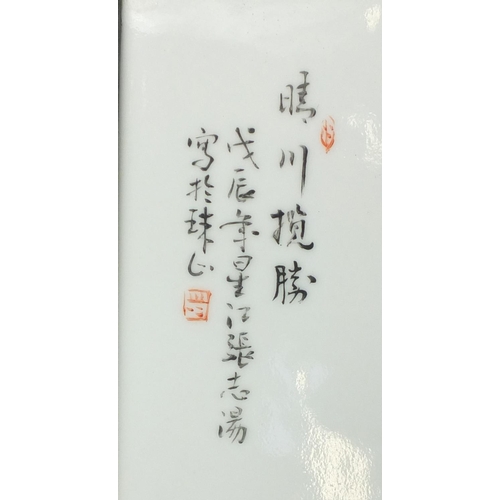 晴川攬勝
戊辰年星江張志湯
寫於珠山